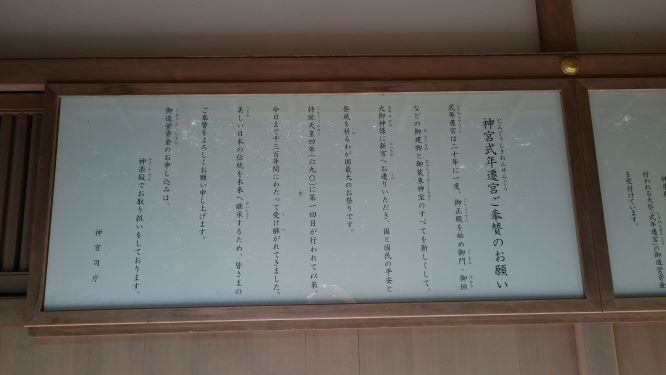 神宮式年遷宮ご奉賛のお願い
式年遷宮は二十年に一度、御正殿を始め御門・御垣
などの御建物と御装束神宝のすべてを新しくして、
大御神様に新宮へお遷りいただき、国と国民の平安と
発展を祈るわが国最大のお祭りです。
持統天皇四年(六九〇)に第一回目が行われて以来、
今日まで千三百年間にわたって受け継がれてきました。
美しい日本の伝統を未来へ継承するため、皆さまの
ご奉賛をよろしくお願い申し上げます。
御造営資金のお申し込みは、
神楽殿でお取り扱いをしております。
神宮司庁
行われる大祭「式年遷宮」の御造営資金
を受付ています。